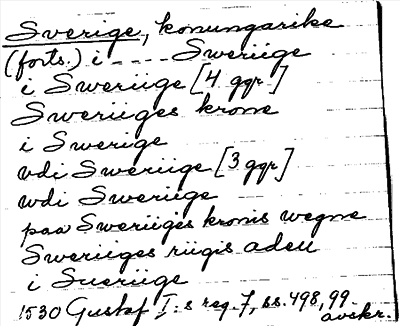 Sverige, konungarike
(forts.) i - - - - Sweriige
i Sweriige [4 ggr]
Sweriiges krone
i Swerige
vdi Sweriige [3 ggr]
wdi Sweriige
paa Sweriiges kronis wegne
Sweriiges riigis adell
i Sueriige
1530 Gustaf I:s reg. 7, ss. 498, 99.
avskr.